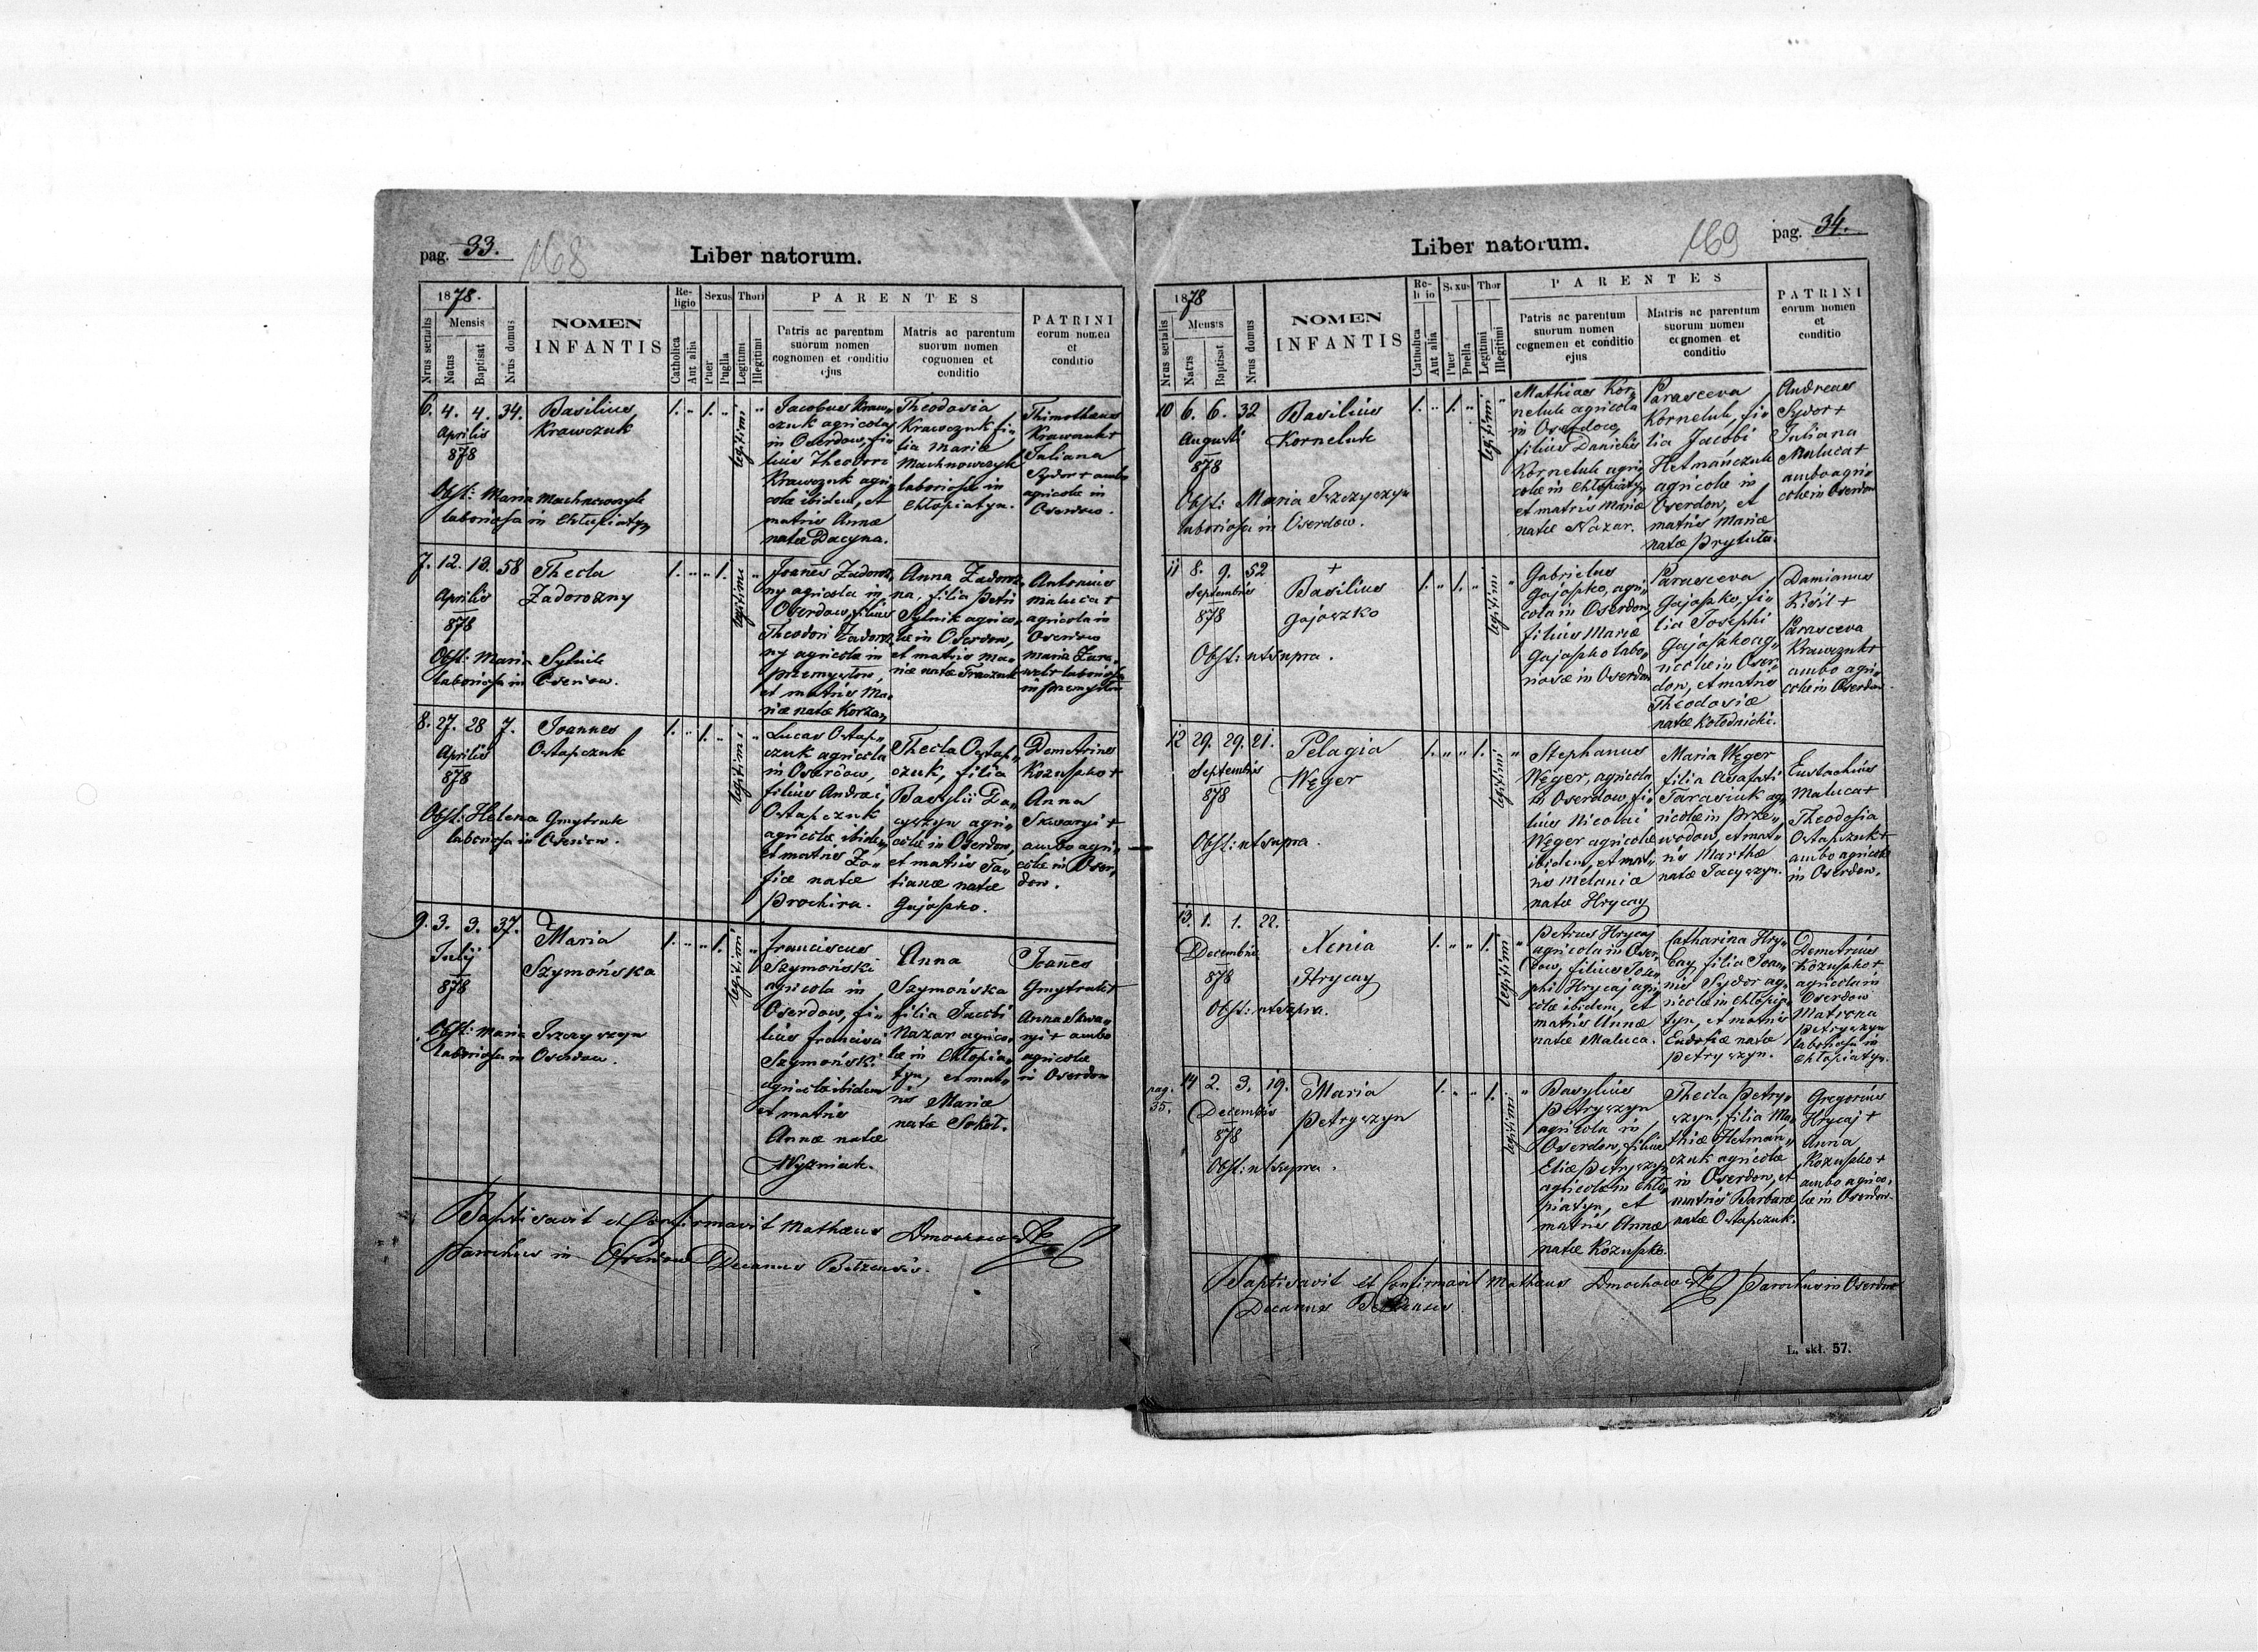 pag. 33.
168
Liber natorum.
1878.
Nrus serialis
Mensis
Natus
Baptisat
Nrus domus
NOMEN
INFANTIS
Religio
Catholica
Aut alia
Sexus
Puer
Puella
Thori
Legitimi
Illegitimi
PARENTES
Patris ac parentum
suorum nomen
cognomen et conditio
ejus
Matris ac parentum
suorum nomen
cognomen et
conditio
PATRINI
eorum nomen
et
conditio
6. 4. 4. 34.
Aprilis
878
Basilius
Krawczuk
1. „ 1. „ legitimi „
Jacobus Kraw„
czuk agricola
in Oserdow, fi„
lius Theodori
Krawczuk agri„
colæ ibidem, et
matris Annæ
natæ Dacyna.
Theodosia
Krawczuk fi„
lia Mariæ
Machnowczyk
laboriosæ in
Chłopiatyn.
Thimotheus
Krawczuk +
Juliana
Sydor + ambo
agricolæ in
Oserdow.
Obst: Maria Machnowczyk
laboriosa in Chłopiatyn
7. 12. 13. 58
Aprilis
878
Thecla
Zadorozny
1. „ „ 1. legitimi „
Joañes Zadoroz„
ny agricola in
Oserdow, filius
Theodori Zadoroz„
ny agricolæ in
Przemysłow,
et matris Ma„
riæ natæ Korzan
Anna Zadoroz„
na, filia Petri
Sytnik agrico„
læ in Oserdow,
et matris Ma„
riæ natæ Trawzuk
Antonius
Maluca +
agricola in
Oserdow
Maria
laboriosa
in Przemysłow
Obst: Maria Sytnik
laboriosa in Oserdow.
8. 27. 28 7.
Aprilis
878
Joannes
Ostapczuk
1. „ 1. „ legitimi „
Lucas Ostap„
czuk agricola
in Oserdow,
filius Andreæ
Ostapczuk
agricolæ ibidem,
et matris Zo„
fiæ natæ
Prochira.
Thecla Ostap„
czuk, filia
Basylii Da„
cyszyn agri„
colæ in Oserdow,
et matris Ta„
tianæ natæ
Gajoszko.
Demetrius
Kozuszko +
Anna
Skwaryi +
ambo agri„
colæ in Oser„
dow.
Obst: Helena Gmytruk
laboriosa in Oserdow.
9. 3. 3. 37.
Julij
878
Maria
Szymońska
1. „ „ 1. legitimi „
Franciscus
Szymoński
agricola in
Oserdow, fi„
lius Francisci
Szymoński
agricolæ ibidem
et matris
Annæ natæ
Wyzniak.
Anna
Szymońska
filia Jacobi
Nazar agrico„
læ in Chłopia„
tyn, et mat„
ris Mariæ
natæ Sokoł.
Joañes
Gmytruk +
Anna Skwa„
ryi + ambo
agricolæ
in Oserdow
Obst: Maria Pszczyszyn
laboriosa in Oserdow.
Baptisavit et Confirmavit Mathæus Dmochowski
Parochus in Oserdow Decanus Bełzensis.
pag. 34.
169
Liber natorum.
1878
Nrus serialis
Mensis
Natus
Baptisat
Nrus domus
NOMEN
INFANTIS
Religio
Catholica
Aut alia
Sexus
Puer
Puella
Thor
Legitimi
Illegitimi
PARENTES
Patris ac parentum
suorum nomen
cognomen et conditio
ejus
Matris ac parentum
suorum nomen
cognomen et
conditio
PATRINI
eorum nomen
et
conditio
10 6. 6. 32
Augusti
878
Basilius
Korneluk
1. „ 1. „ legitimi „
Mathias Kor„
neluk agricola
in Oserdow,
filius Danielis
Korneluk agri„
colæ in Chłopiatyn
et matris Mariæ
natæ Nazar.
Parasceva
Korneluk, fi„
lia Jacobi
Hetmańczuk
agricolæ in
Oserdow, et
matris Mariæ
natæ Prytuła.
Andreas
Sydor +
Juliana
Maluca +
ambo agri„
colæ in Oserdow
Obst: Maria Pszczyszyn
laboriosa in Oserdow.
11 8. 9. 52
Septembris
878
+
Basilius
Gajoszko
1. „ 1. „ legitimi „
Gabrielus
Gajoszko, agri„
cola in Oserdow,
filius Mariæ
Gajoszko labo„
riosæ in Oserdow
Parasceva
Gajoszko, fi„
lia Josephi
Gajoszko ag„
ricolæ in Oser„
dow, et matris
Theodosiæ
natæ Kołodnicki.
Damianus
Kisił +
Parasceva
Krawczuk +
ambo agri„
colæ in Oserdow.
Obst: ut supra.
12 29. 29. 21.
Septembris
878
Pelagia
Węger
1. „ „ 1. legitimi „
Stephanus
Węger, agricola
in Oserdow, fi„
lius Nicolai
Węger agricolæ
ibidem, et mat„
ris Melaniæ
natæ Hrycay
Maria Węger
filia Asafati
Tarasiuk ag„
ricolæ in Prze„
wodow, et mat„
ris Marthæ
natæ Jacyszyn.
Eustachius
Maluca +
Theodosia
Ostapczuk +
ambo agricolæ
in Oserdow.
Obst: ut supra.
13. 1. 1. 22.
Decembris
878
Xenia
Hrycay
1. „ „ 1. legitimi „
Petrus Hrycaj
agricola in Oser„
dow, filius Jose„
phi Hrycaj agri„
colæ ibidem, et
matris Annæ
natæ Maluca.
Catharina Hry„
cay filia Joan„
nis Sydor ag„
ricolæ in Chłopia„
tyn, et matris
Eudofiæ natæ
Petryszyn.
Demetrius
Kozuszko +
agricola in
Oserdow
Matrona
Petryszyn
laboriosa in
Chłopiatyn.
Obst: ut supra.
pag.
35.
14 2. 3. 19.
Decembris
878
Maria
Petryszyn
1. „ „ 1. legitimi „
Basylius
Petryszyn
agricola in
Oserdow, filius
Eliæ Petryszyn
agricolæ in Chło„
piatyn, et
matris Annæ
natæ Kozuszko.
Thecla Petry„
szyn, filia Ma„
thiæ Hetman„
czuk agricolæ
in Oserdow, et
matris Barbaræ
natæ Ostapczuk.
Gregorius
Hrycaj +
Anna
Kozuszko +
ambo agrico„
læ in Oserdow.
Obst: ut supra.
Baptisavit et Confirmavit Mathæus Dmochowski Parochus in Oserdow
Decanus Bełzensis.
L. skł. 57.